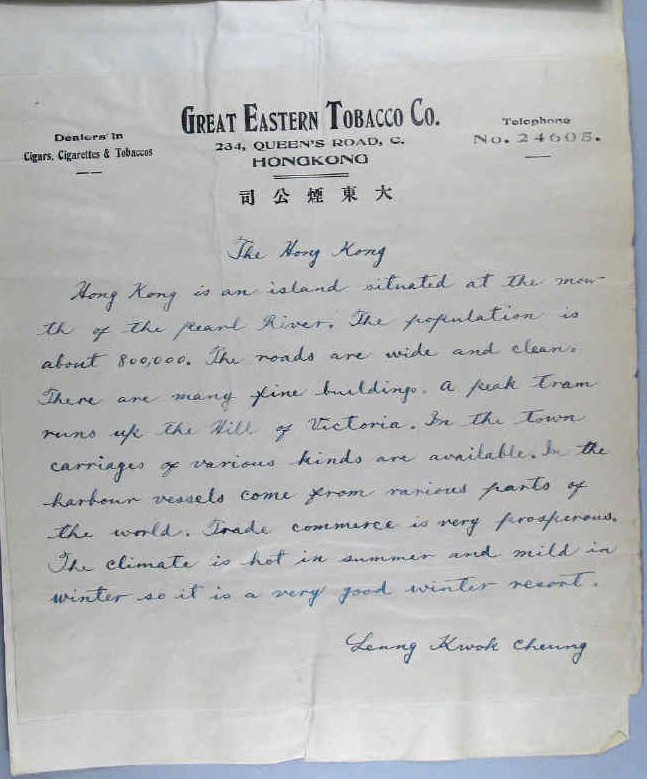 GREAT EASTERN TOBACCO CO.
234, QUEEN'S ROAD, C.
HONGKONG
Dealers in
Cigars, Cigarettes & Tobaccos
Telephone
No. 24605.
司公煙東大
The Hong Kong
Hong Kong is an island situated at the mou-
th of the pearl River. The population is
about 800,000. The roads are wide and clean.
There are many fine buildings. A peak tram
runs up the Hill of Victoria. In the town
carriages of various kinds are available. In the
harbour vessels come from various parts of
the world. Trade commerce is very prosperous.
The climate is hot in summer and mild in
winter so it is a very good winter resort.
Leung Kwok Cheung